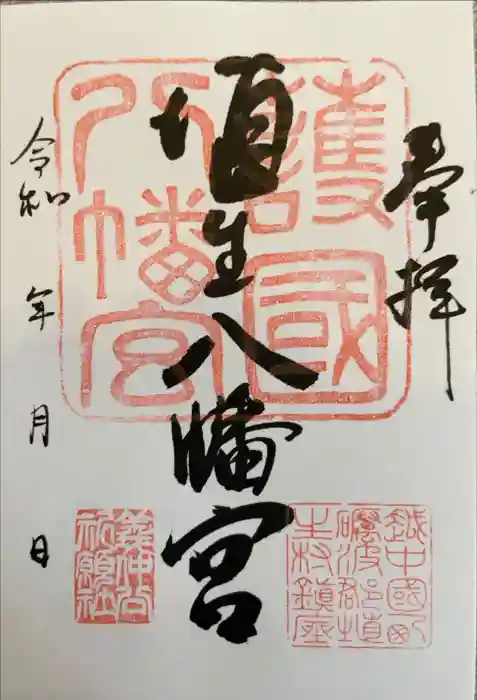 奉拝
護國
八幡宮
埴生八幡宮
越中國西
礪波郡埴
生村鎮座
義仲公
祈願社
令和 年 月 日